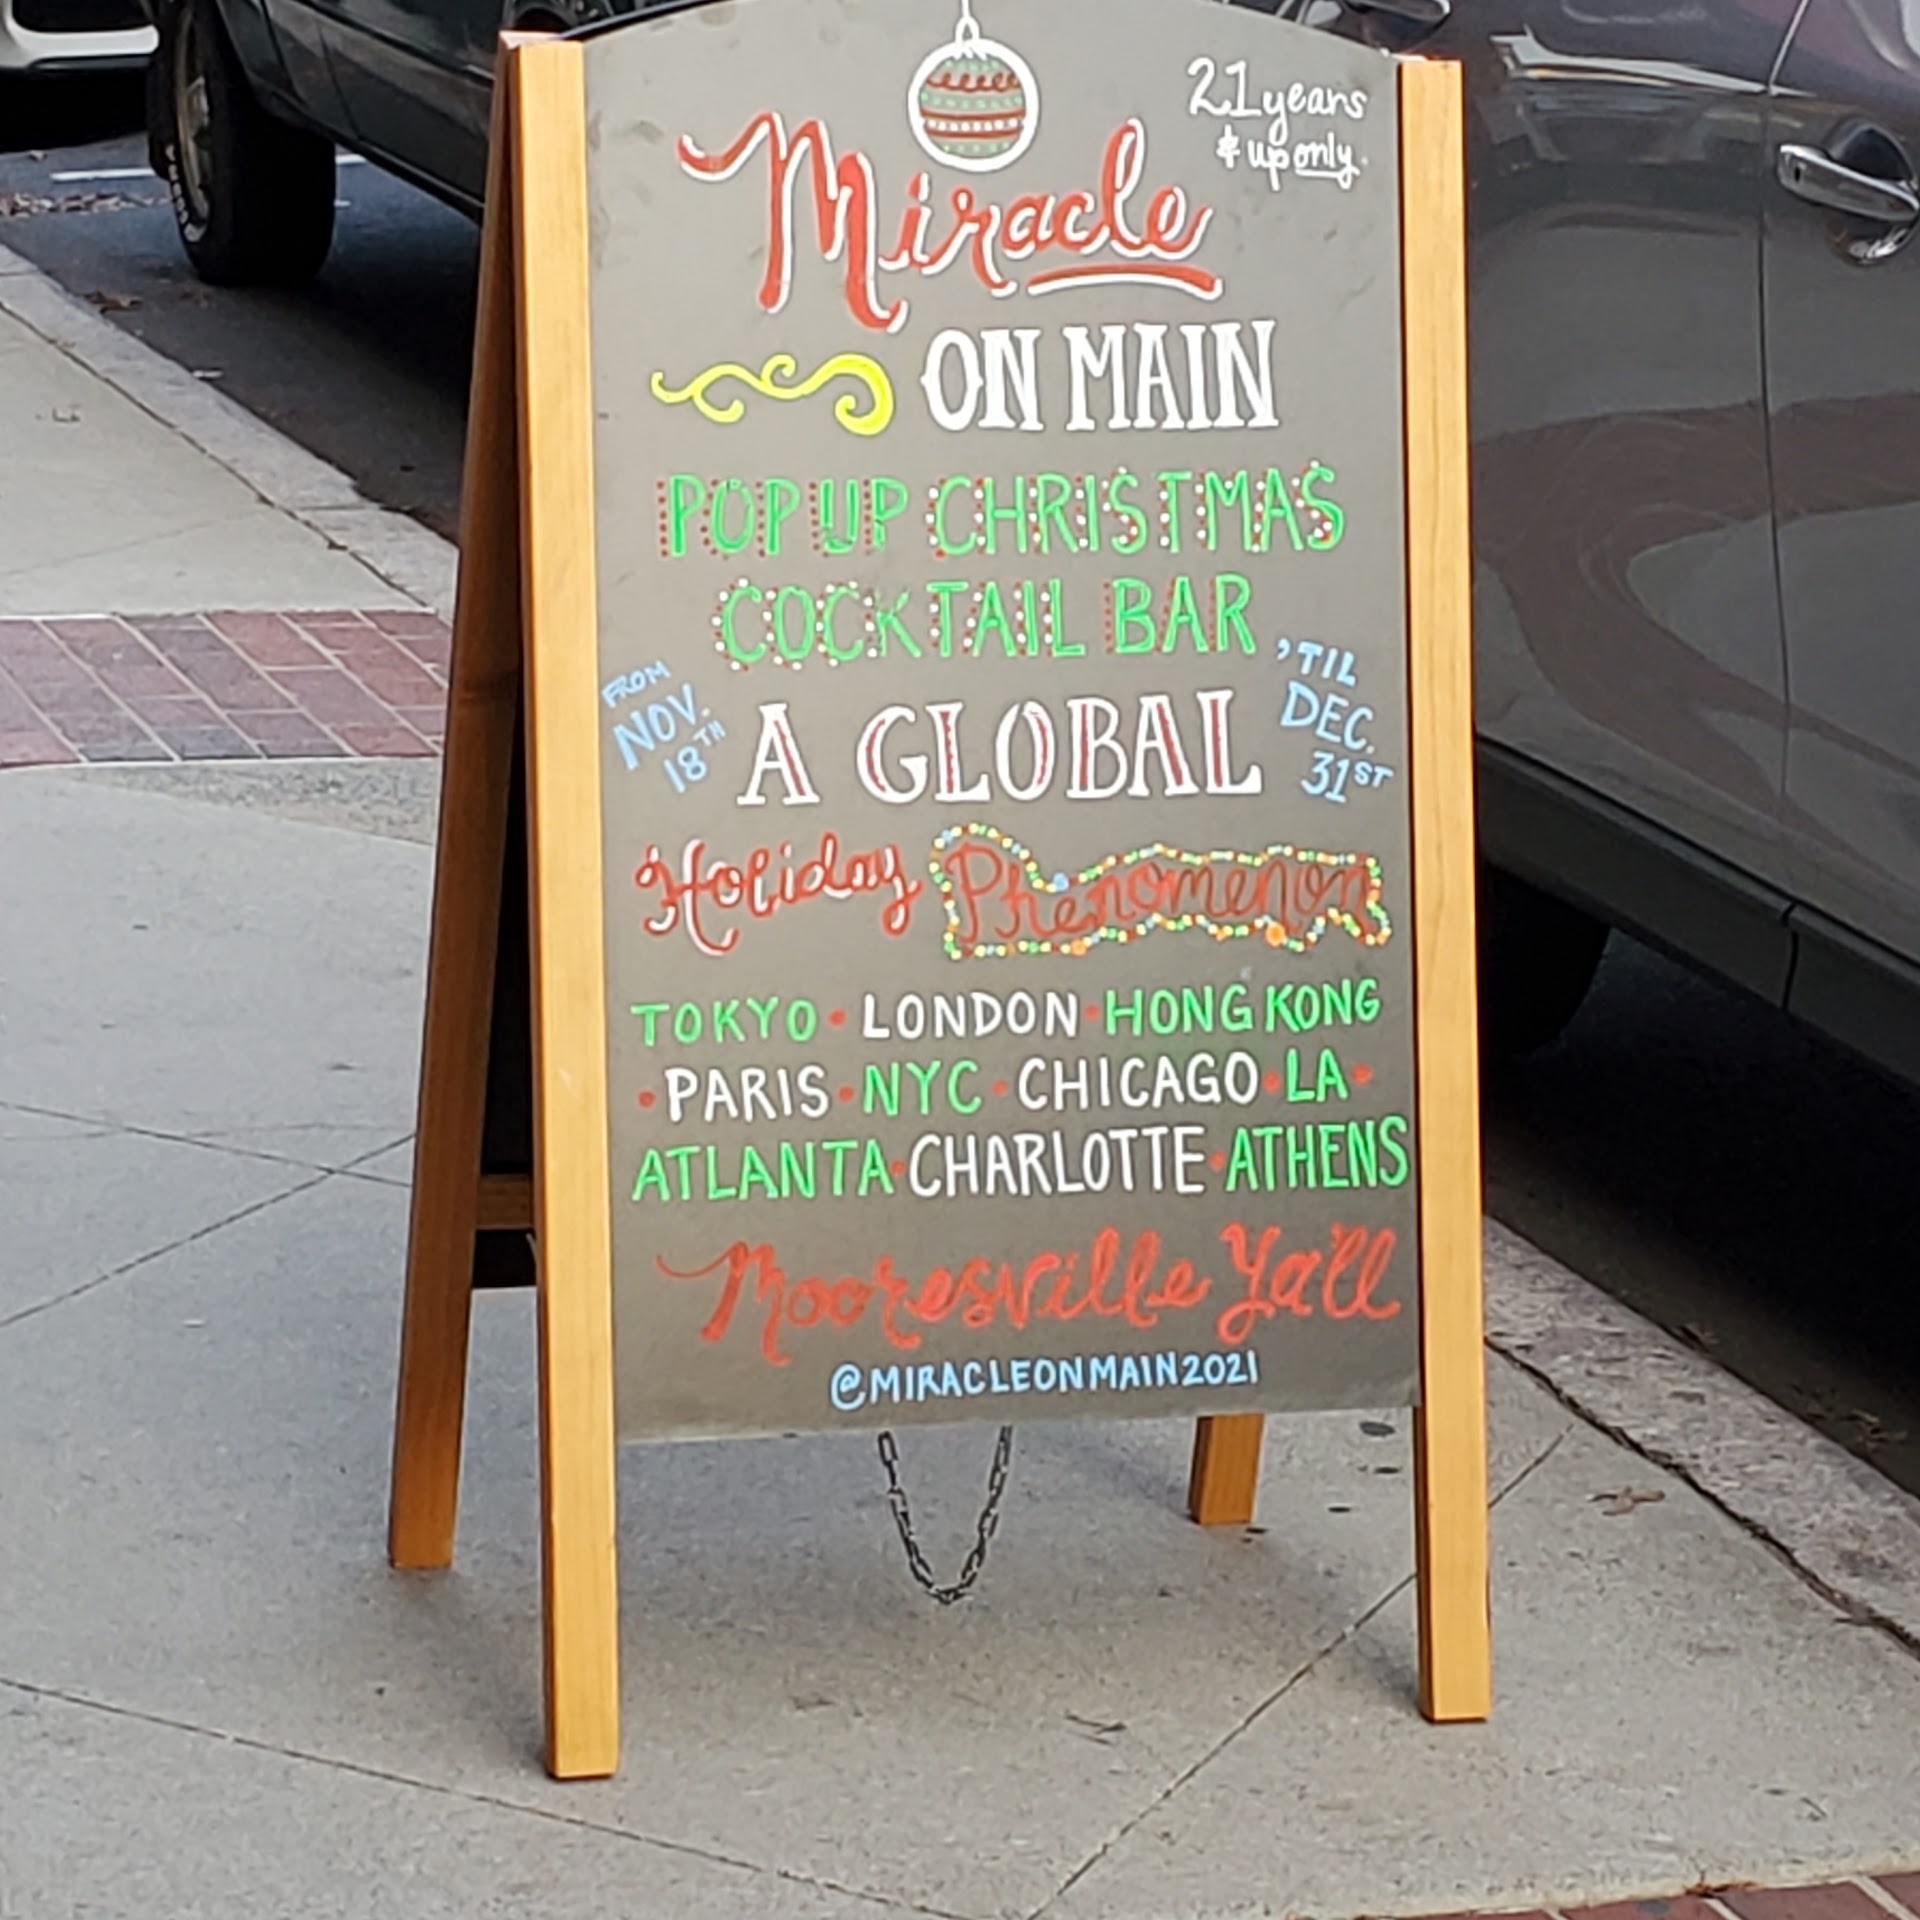 21 years
& up only.
Miracle
ON MAIN
POP UP CHRISTMAS
COCKTAIL BAR
FROM
NOV.
18TH
'TIL
DEC.
31ST
A GLOBAL
Holiday Phenomenon
TOKYO • LONDON • HONG KONG
• PARIS • NYC • CHICAGO • LA •
ATLANTA • CHARLOTTE • ATHENS
Mooresville Ya'll
@MIRACLEONMAIN2021